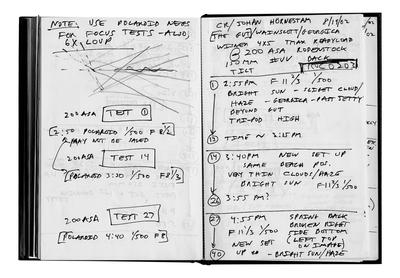 NOTE: USE POLAROID NEGS
FOR FOCUS TESTS - ALSO,
6X LOUP
200 ASA TEST 1
2:50 POLAROID 1/500 F 8 1/2
200 ASA TEST 14
POLAROID 3:30 1/500 F8 1/3
200 ASA TEST 27
POLAROID 4:40 1/500 F8
CR/ JOHAN 8/13/02
[THE GUT]/WAINSCOTT/GEORGICA
4X5 TMAX READYLOAD
@ 200 ASA RODENSTOCK
150 MM BACK
TILT
1 2:55 PM F 11 1/500
BRIGHT SUN - SLIGHT CLOUD/
HAZE - GEORGICA - PAST JETTY
BEYOND GUT
TRI-POD HIGH
13 TIME ~ 3:15PM
14 3:40PM NEW SET UP
SAME BEACH POS.
VERY THIN CLOUDS/HAZE
BRIGHT SUN F 11 1/500
26 3:55 PM?
27 4:55 PM SPRING BACK
BROKEN RIGHT
SIDE BOTTOM
NEW SET (LEFT TOP
ON IMAGE)
40 UP - BRIGHT SUN/HAZE